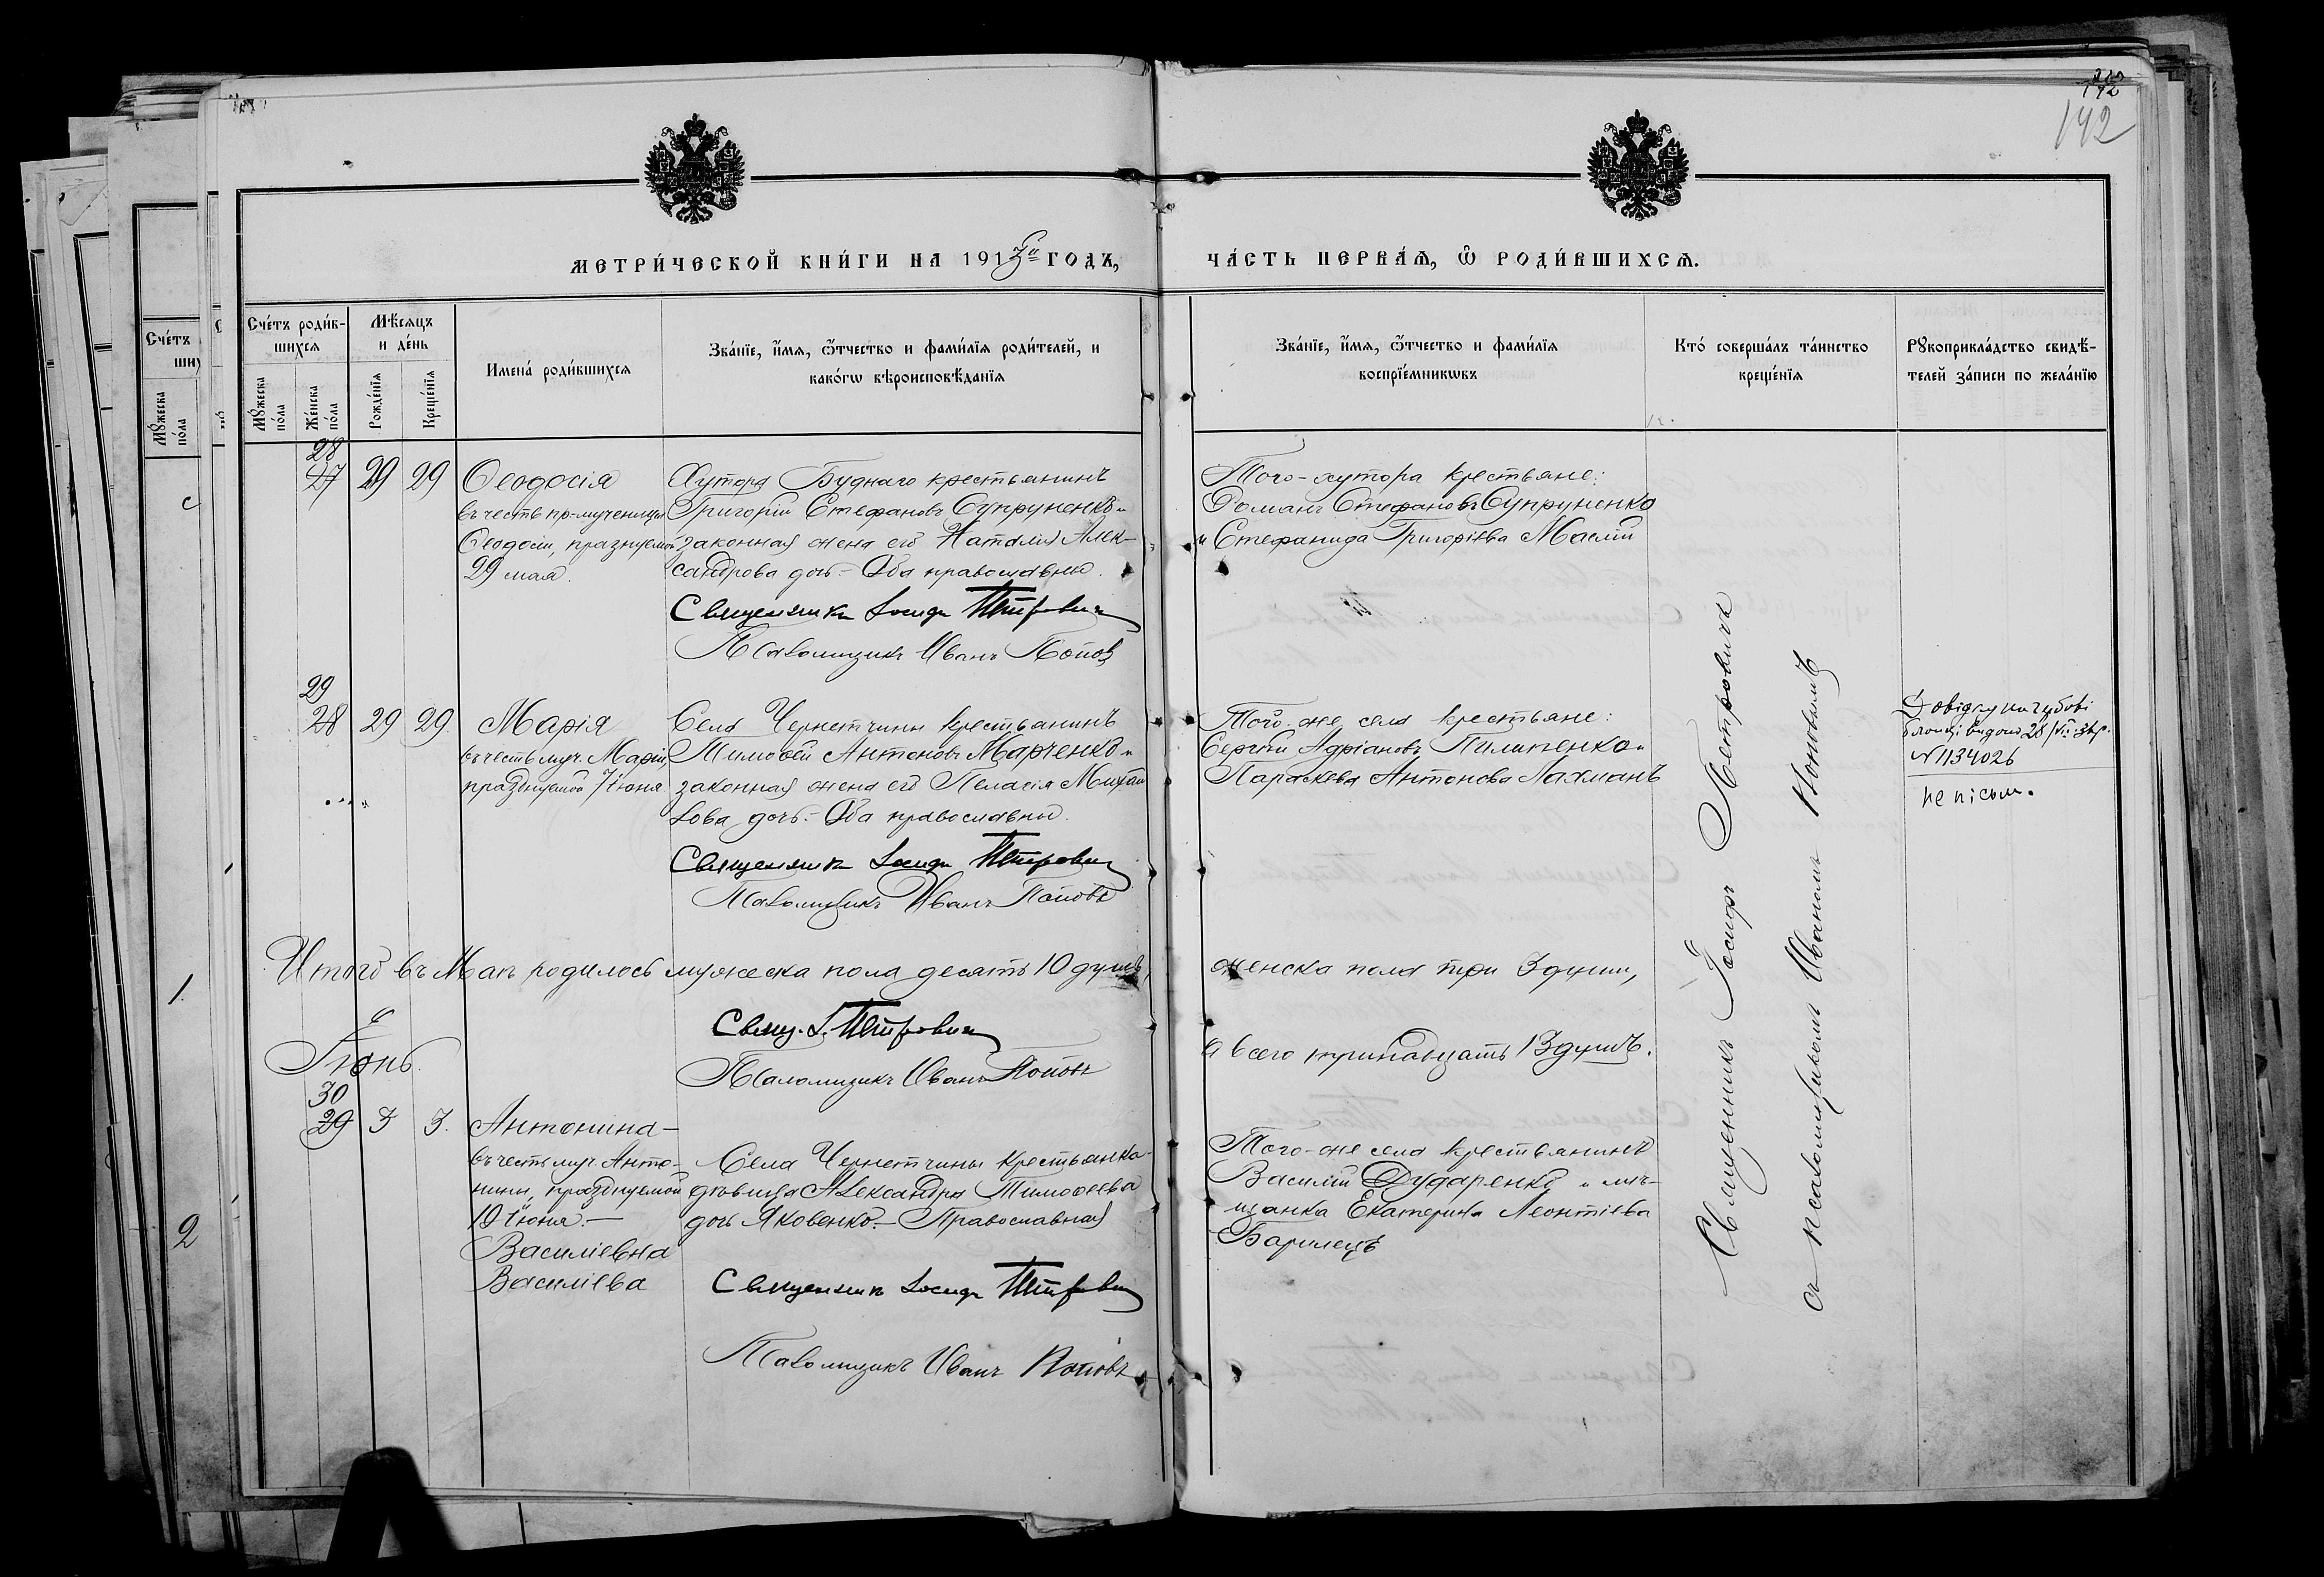 142
142
МЕТРИ́ЧЕСКОЙ КНИ́ГИ НА 1913й ГОДЪ,
ЧА́СТЬ ПЕРВА́Ѧ, Ѽ РОДИ́ВШИХСѦ.
Сче́тъ роди́в-
шихсѧ
Мꙋ́жеска по́ла
Же́нска по́ла
Мѣ́сѧцъ
и де́нь
Рожде́нїѧ
Креще́нїѧ
Имена́ роди́вшихсѧ
Зва́нїе, и҆́мѧ, ѻ҆́тчество и фами́лїѧ роди́телей, и
како́гѡ вѣроисповѣ́данїѧ
Зва́нїе, и҆́мѧ, ѻ҆́тчество и фами́лїѧ
воспрїе́мникѡвъ
Кто́ соверша́лъ та́инство
креще́нїѧ
Рꙋкоприкла́дство свидѣ́-
телей за́писи по жела́нїю
28
27 29 29 Ѳеодосія
въ честь пр-мученицы
Ѳеодосіи, празнуемой
29 мая.
Хутора Буднаго крестьянинъ
Григорій Стефановъ Супруненко и
законная жена его Наталія Алек-
сандрова дочь. - Оба православны.
Священникъ Іосифъ Петровичъ
Псаломщикъ Иванъ Поповъ
Того-хутора крестьяне:
Романъ Стефановъ Супруненко
и Стефанида Григоріева Маслий
29
28 29 29. Марія
въ честь муч. Маріи,
празднуемой 7 іюня
Села Чернетчины крестьянинъ
Тимоѳей Антоновъ Марченко и
законная жена его Пелагія Михаи
лова дочь. - Оба православны.
Священникъ Іосифъ Петровичъ
Псаломщикъ Иванъ Поповъ
Того-же села крестьяне:
Сергій Адріановъ Пилипенко и
Параскева Антонова Лахманъ
28/VII
N1134026
не письм.
Итого въ Маѣ родилось мужеска пола десять 10 душъ,
женска пола три 3 души,
Свящ. І. Петровичъ
Псаломщикъ Иванъ Поповъ
а всего тринадцать 13 душъ.
Іюнь.
30
29 3 3. Антонина -
въ честь муч. Анто-
нины, празднуемой
10 іюня. -
Василіевна
Василіева
Села Чернетчины крестьянка
дѣвица Александра Тимоѳеева
дочь Яковенко. - Православная
Священникъ Іосифъ Петровичъ
Псаломщикъ Иванъ Поповъ
Того-же села крестьянинъ
Василій Дударенко и мѣ-
щанка Екатерина Леонтіева
Барилецъ
Священникъ Іосифъ Петровичъ
съ псаломщикомъ Иваномъ Поповымъ
Сче́тъ
Мꙋ́жеска по́ла
1.
2